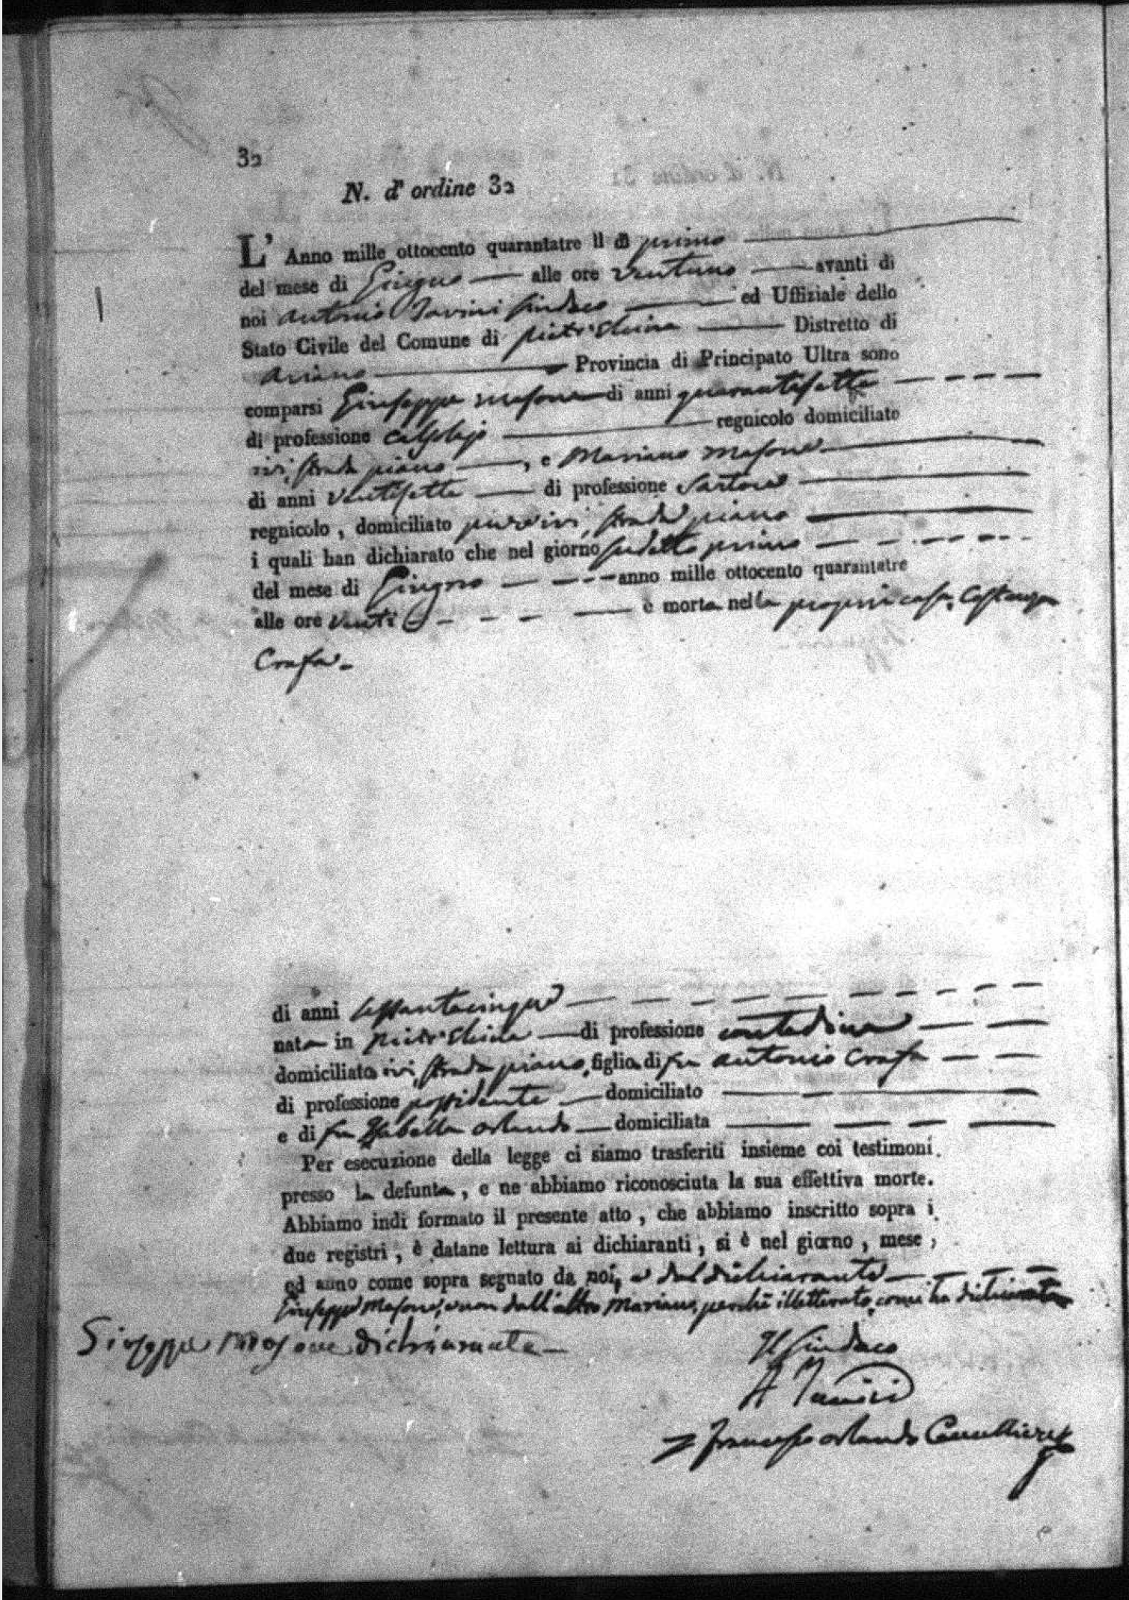 32
N. d'ordine 32
L' Anno mille ottocento quarantatre Il dì primo
del mese di Giugno alle ore ventuno avanti di
noi Antonio Sindaco ed Uffiziale dello
Stato Civile del Comune di Distretto di
Ariano Provincia di Principato Ultra sono
comparsi Giuseppe Masone di anni quarantasette
di professione regnicolo domiciliato
ivi, strada piano, e Mariano Masone
di anni ventisette di professione Sartore
regnicolo, domiciliato pure ivi, strada piano
i quali han dichiarato che nel giorno sudetto primo
del mese di Giugno anno mille ottocento quarantatre
alle ore venti è morta nella propria casa, Costanza
Crafa
di anni sessantacinque
nata in di professione contadina
domiciliata ivi, strada piano, figlia di fu Antonio Crafa
di professione possidente domiciliato
e di fu Isabella Orlando domiciliata
Per esecuzione della legge ci siamo trasferiti insieme coi testimoni
presso la defunta, e ne abbiamo riconosciuta la sua effettiva morte.
Abbiamo indi formato il presente atto, che abbiamo inscritto sopra i
due registri, è datane lettura ai dichiaranti, si è nel giorno, mese,
ed anno come sopra segnato da noi, e dal dichiarante
Giuseppe Masone, e non dall'altro Mariano, perchè illetterato, come ha dichiarato
Giuseppe Masone dichiarante
Il Sindaco
A
Francesco Orlando Cancelliere